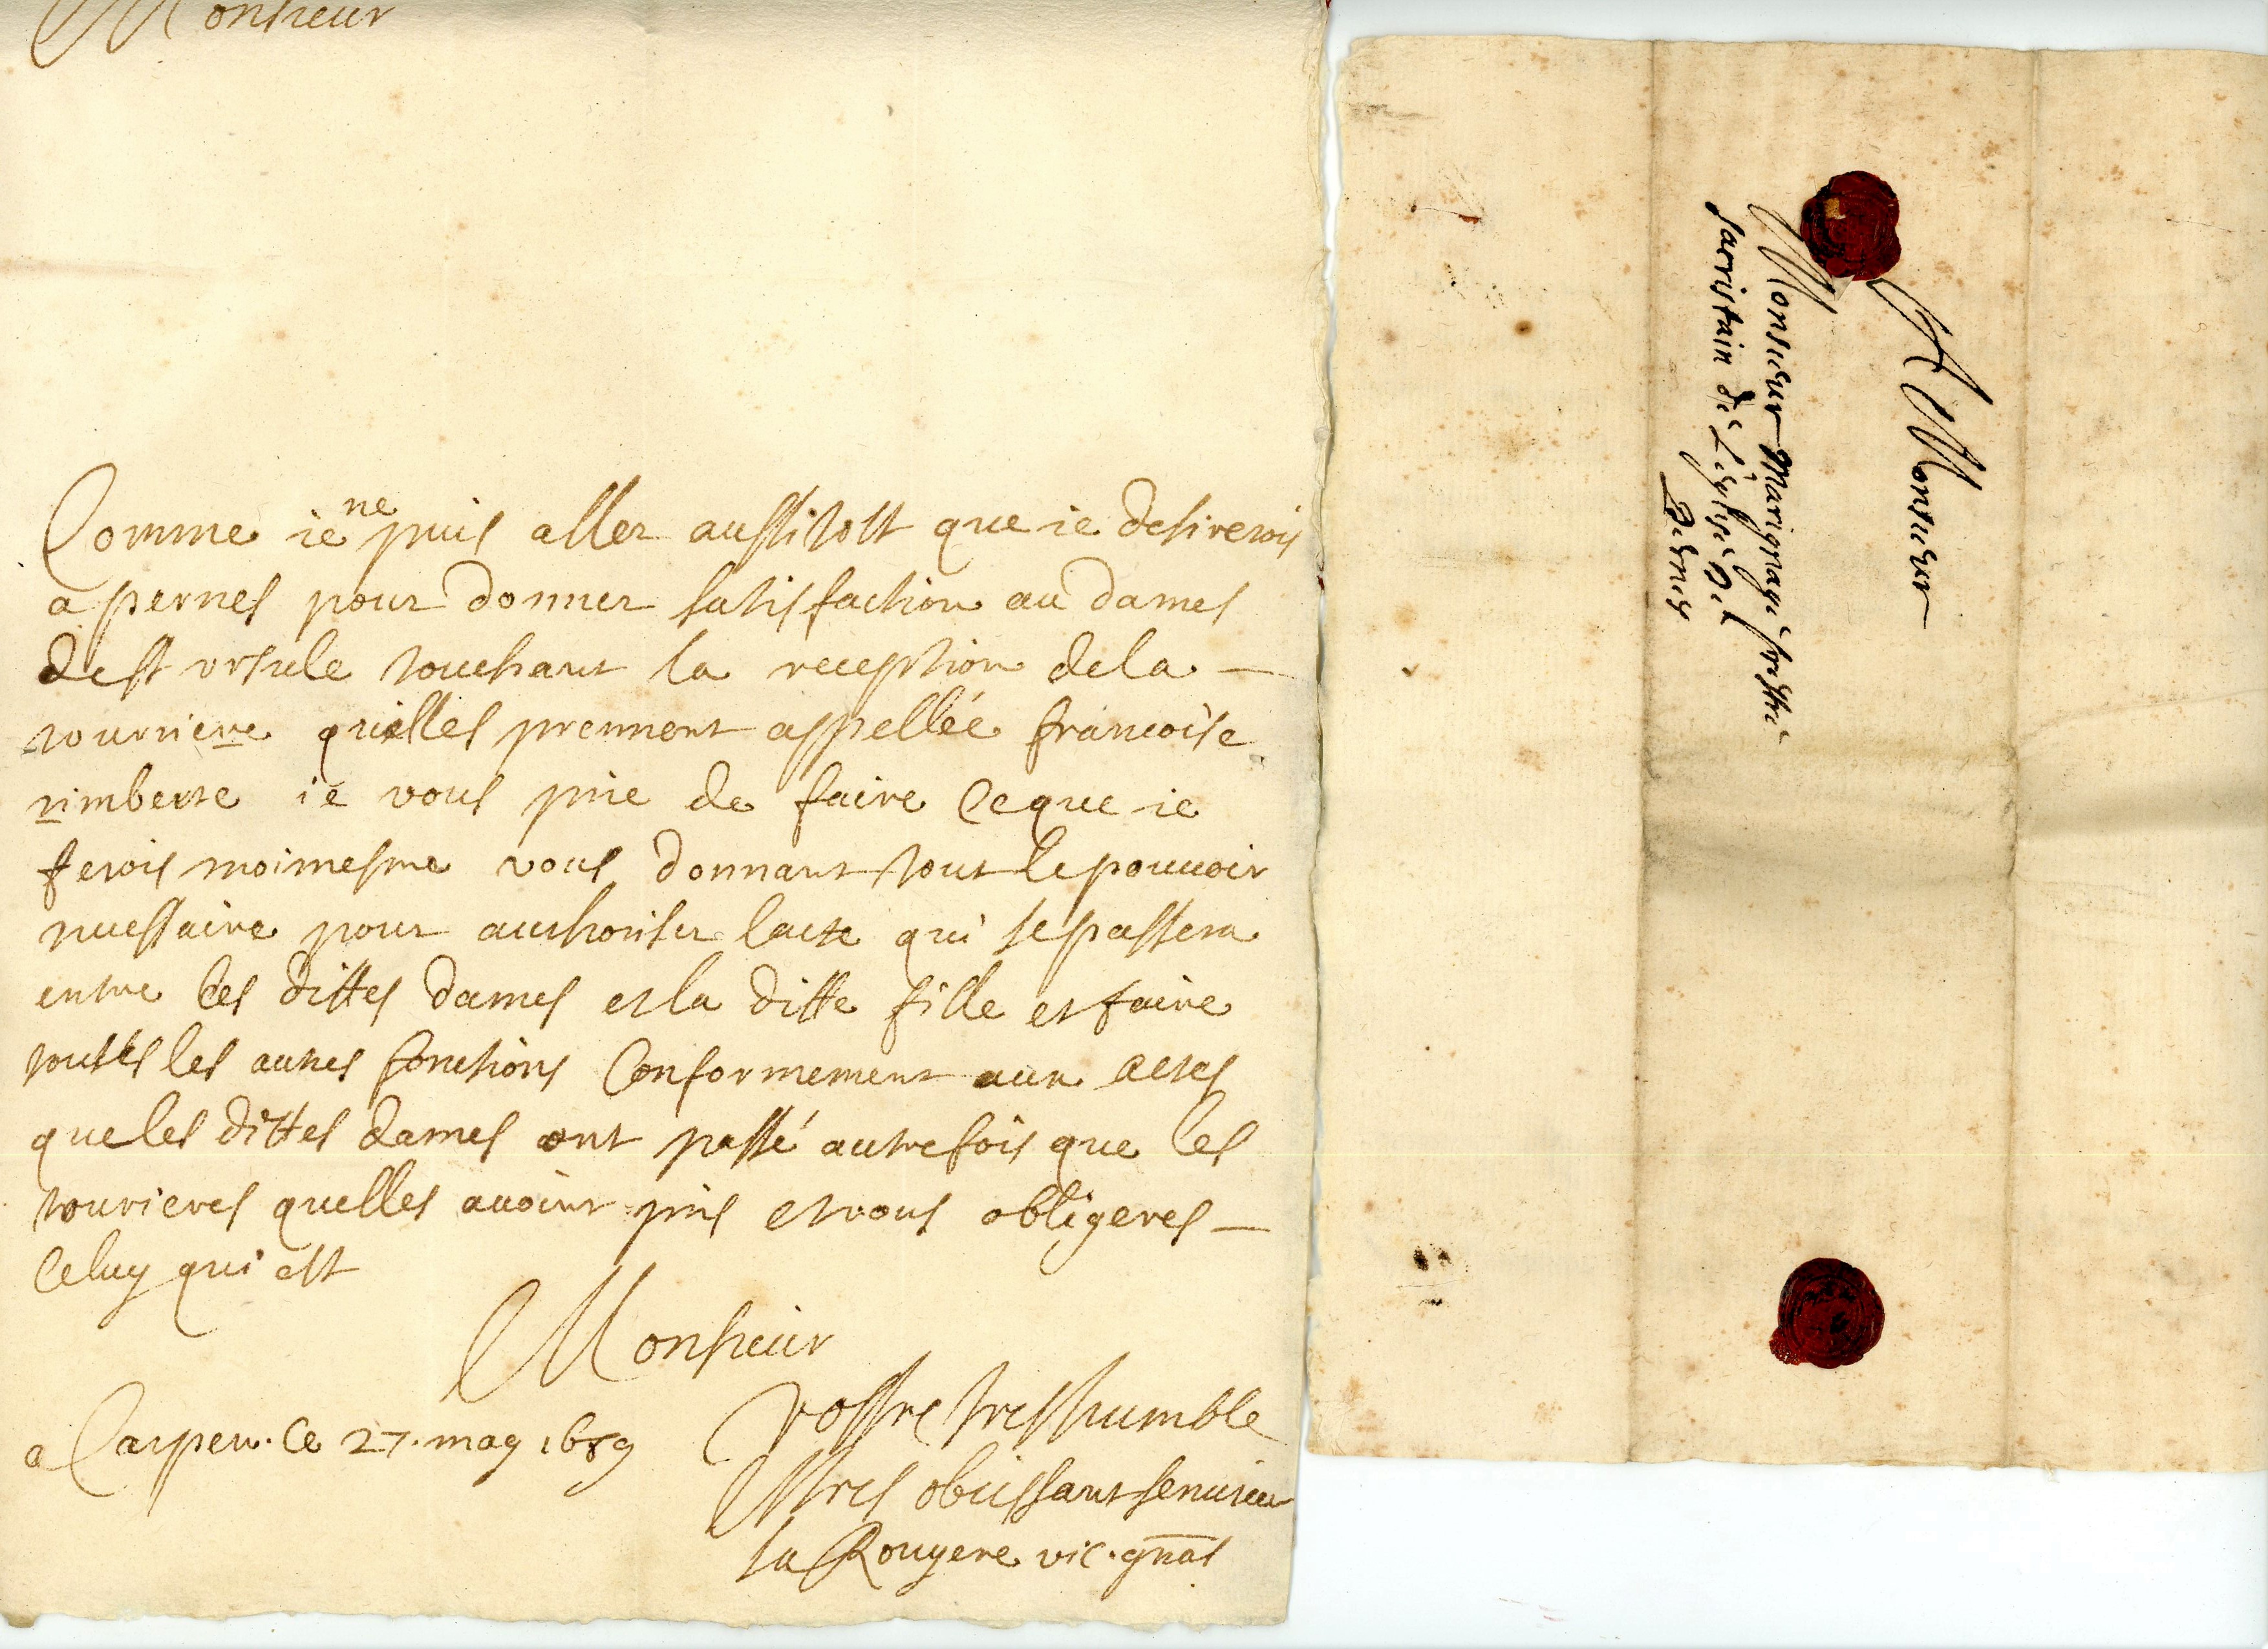 Monsieur
Comme ie ne puis aller aussitost que ie desirerois
a pernes pour donner satisfaction au dames
de st vrsule touchant la reception de la —
tourriere quelles prennent appellée francoise
rimberte ie vous prie de faire ce que ie
ferois moimesme vous donnant tout le pouuoir
necessaire pour authoriser lacte qui se passera
entre les dittes dames et la ditte fille et faire
toutes les autres fonctions Conformement aux actes
que les dittes dames ont passé autrefois que les
tourieres quelles auoint pris et vous obligeres —
Celuy qui est
Monsieur
vostre tres humble
et tres obeissant seruiteur
a Carpen. ce 27. may 1689
la Rougere vic. gnāl
A Monsieur
Monsieur Marignane prestre
sacristain de L'eglise de
Pernes